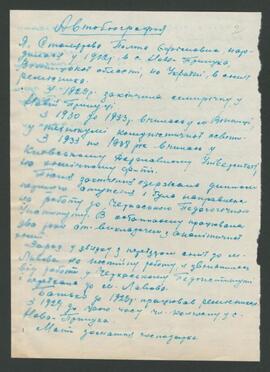 Автобіография
2
Я, Столярова Сергіївна народилась у 1912 р. в с. Ново-Прилука,
Вінницької області, на Україні, в сім'ї
ремісника.
У 1929 р. закінчила семирічку у
Новій Прилуці
З 1930 до 1933 р. вчилась у м. Вінниці
у технікумі комуністичної освіти.
З 1933 по 1938 рік вчилась у
Київському Державному Університеті,
на факті.
Після закінчення одержала диплом
і була направлена
на роботу до Черкаського Педагогічного
Інституту. В останньому працювала
два роки викладачем
мови.
Зараз у зв'язку з переїздом сім'ї до м.
Львова на постійну роботу я звільнилась
від роботи у Черкаському Педінституті
і переїхала до м. Львова.
Батько до 1929 р. працював ремісником
З 1929 до цього часу чл. колгоспу у с.
Ново-Прилука
Мати домашня господарка